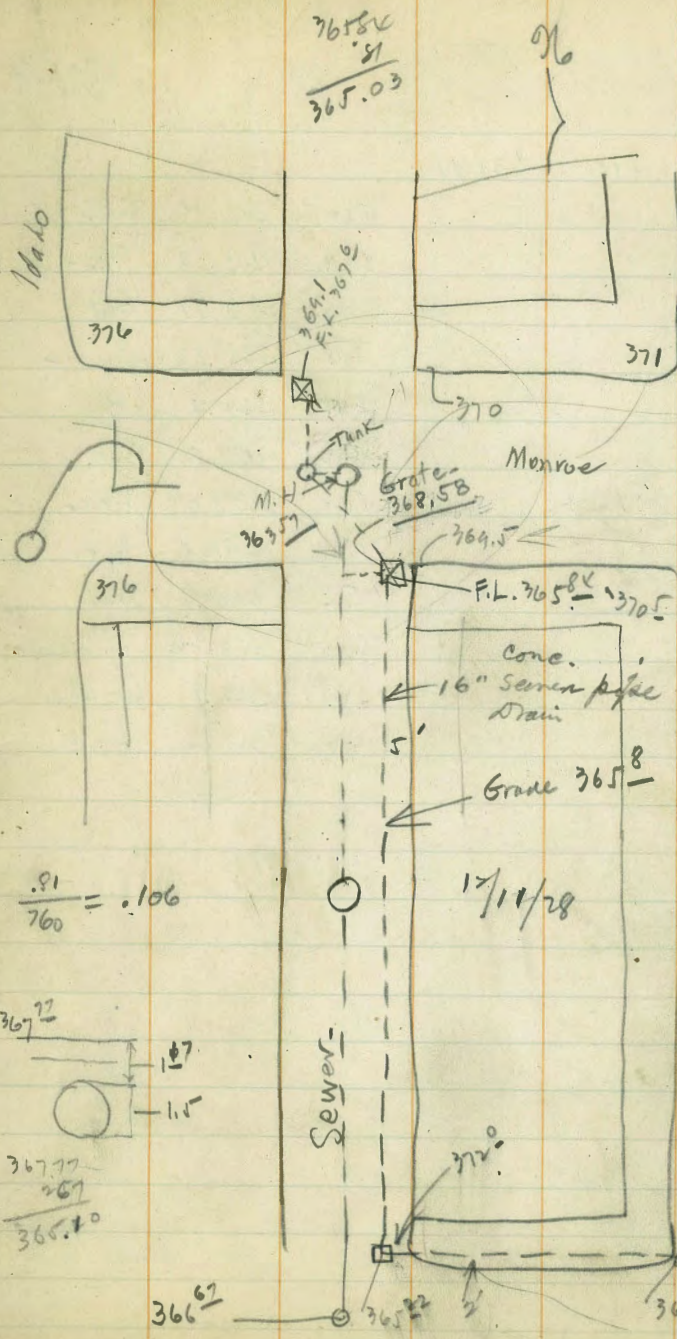 365.84
.81
365.03
Idaho
369.1
F.L. 367.6
376
371
370
Tank
Monroe
M.H.
Grate
368.58
363.57
369.5
376
F.L. 365.84
370.5
Conc.
16" Sewer pipe
Drain
5'
Grade 365.8
.81
760 = .106
12/11/28
367.77
1.67
1.5
Sewer
367.77
2.67
365.10
372.0
366.67
365.22
2'
36